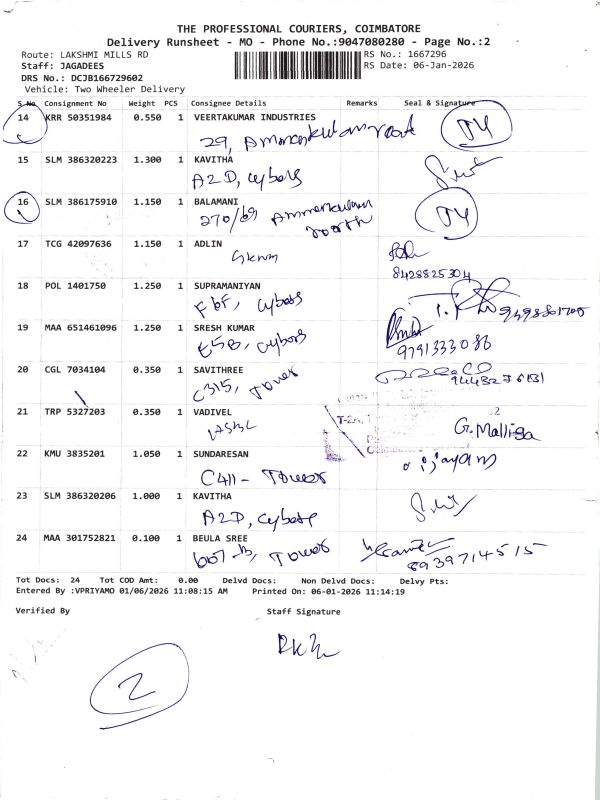 THE PROFESSIONAL COURIERS, COIMBATORE
Delivery Runsheet - MO - Phone No.:9047080280 - Page No.:2
Route: LAKSHMI MILLS RD RS No.: 1667296
Staff: JAGADEES RS Date: 06-Jan-2026
DRS No.: DCJB166729602
Vehicle: Two Wheeler Delivery
S.No Consignment No Weight PCS Consignee Details Remarks Seal & Signature
14 KRR 50351984 0.550 1 VEERTAKUMAR INDUSTRIES
29,
15 SLM 386320223 1.300 1 KAVITHA
A2D, Cybers
16 SLM 386175910 1.150 1 BALAMANI
270/69 Ammankulam
17 TCG 42097636 1.150 1 ADLIN
8428825304
18 POL 1401750 1.250 1 SUPRAMANIYAN
F6F, Cybers
19 MAA 651461096 1.250 1 SRESH KUMAR
E5B, Cybers
9791333086
20 CGL 7034104 0.350 1 SAVITHREE
C315, Tower
21 TRP 5327203 0.350 1 VADIVEL
G. Malliga
22 KMU 3835201 1.050 1 SUNDARESAN
C411 - Tower
23 SLM 386320206 1.000 1 KAVITHA
A2D, Cybers
24 MAA 301752821 0.100 1 BEULA SREE
Tower
8939714515
Tot Docs: 24 Tot COD Amt: 0.00 Delvd Docs: Non Delvd Docs: Delvy Pts:
Entered By :VPRIYAMO 01/06/2026 11:08:15 AM Printed On: 06-01-2026 11:14:19
Verified By Staff Signature
2